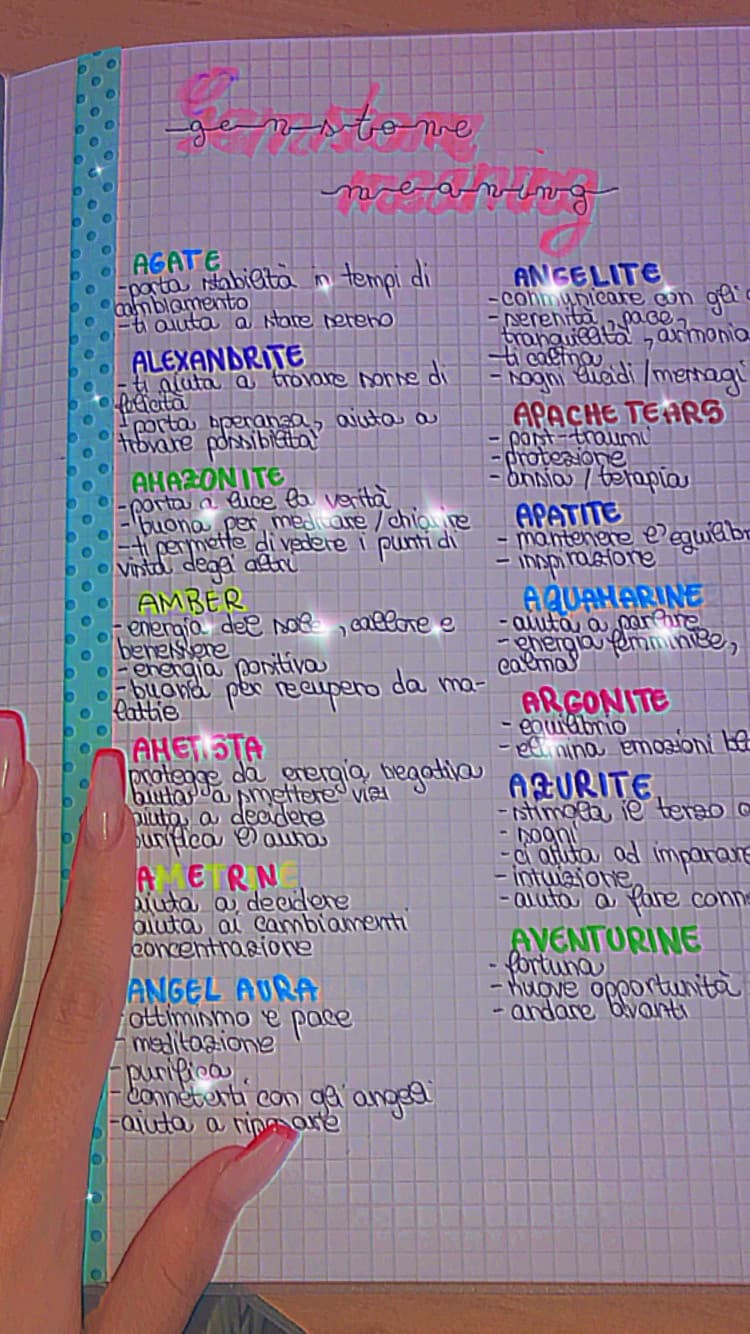 genstone
meaning
AGATE
-porta stabilità in tempi di
cambiamento
-ti aiuta a stare sereno
ALEXANDRITE
- ti aiuta a trovare norme di
felicità
porta speranza, aiuta a
trovare possibilità
AMAZONITE
-porta a luce la verità
-buona per meditare / chiarire
-ti permette di vedere i punti di
vista degli altri
AMBER
-energia del sole, callore e
benessere
-energia positiva
-buona per recupero da ma-
lattie
AMETISTA
protegge da energia negativa
aiuta a smettere vizi
aiuta a decidere
purifica l'aura
AMETRINE
aiuta a decidere
aiuta ai cambiamenti
concentrazione
ANGEL AURA
ottimismo e pace
- meditazione
-purifica
-conneterti con gli angeli
-aiuta a riposare
ANGELITE
-conmunicare con gli
-serenità, pace,
tranquillità, armonia
-ti calma
- sogni lucidi / messagi
APACHE TEARS
- post-traumi
-protezione
- ansia / terapia
APATITE
- mantenere l'equilibr
- inspirazione
AQUAMARINE
-aiuta a parlare
-energia femminile,
calma
ARGONITE
- equilibrio
- elimina emozioni
AZURITE
-stimola il terzo
- sogni
-ci aiuta ad imparare
-intuizione
-aiuta a fare conn
AVENTURINE
- fortuna
-nuove opportunità
- andare avanti